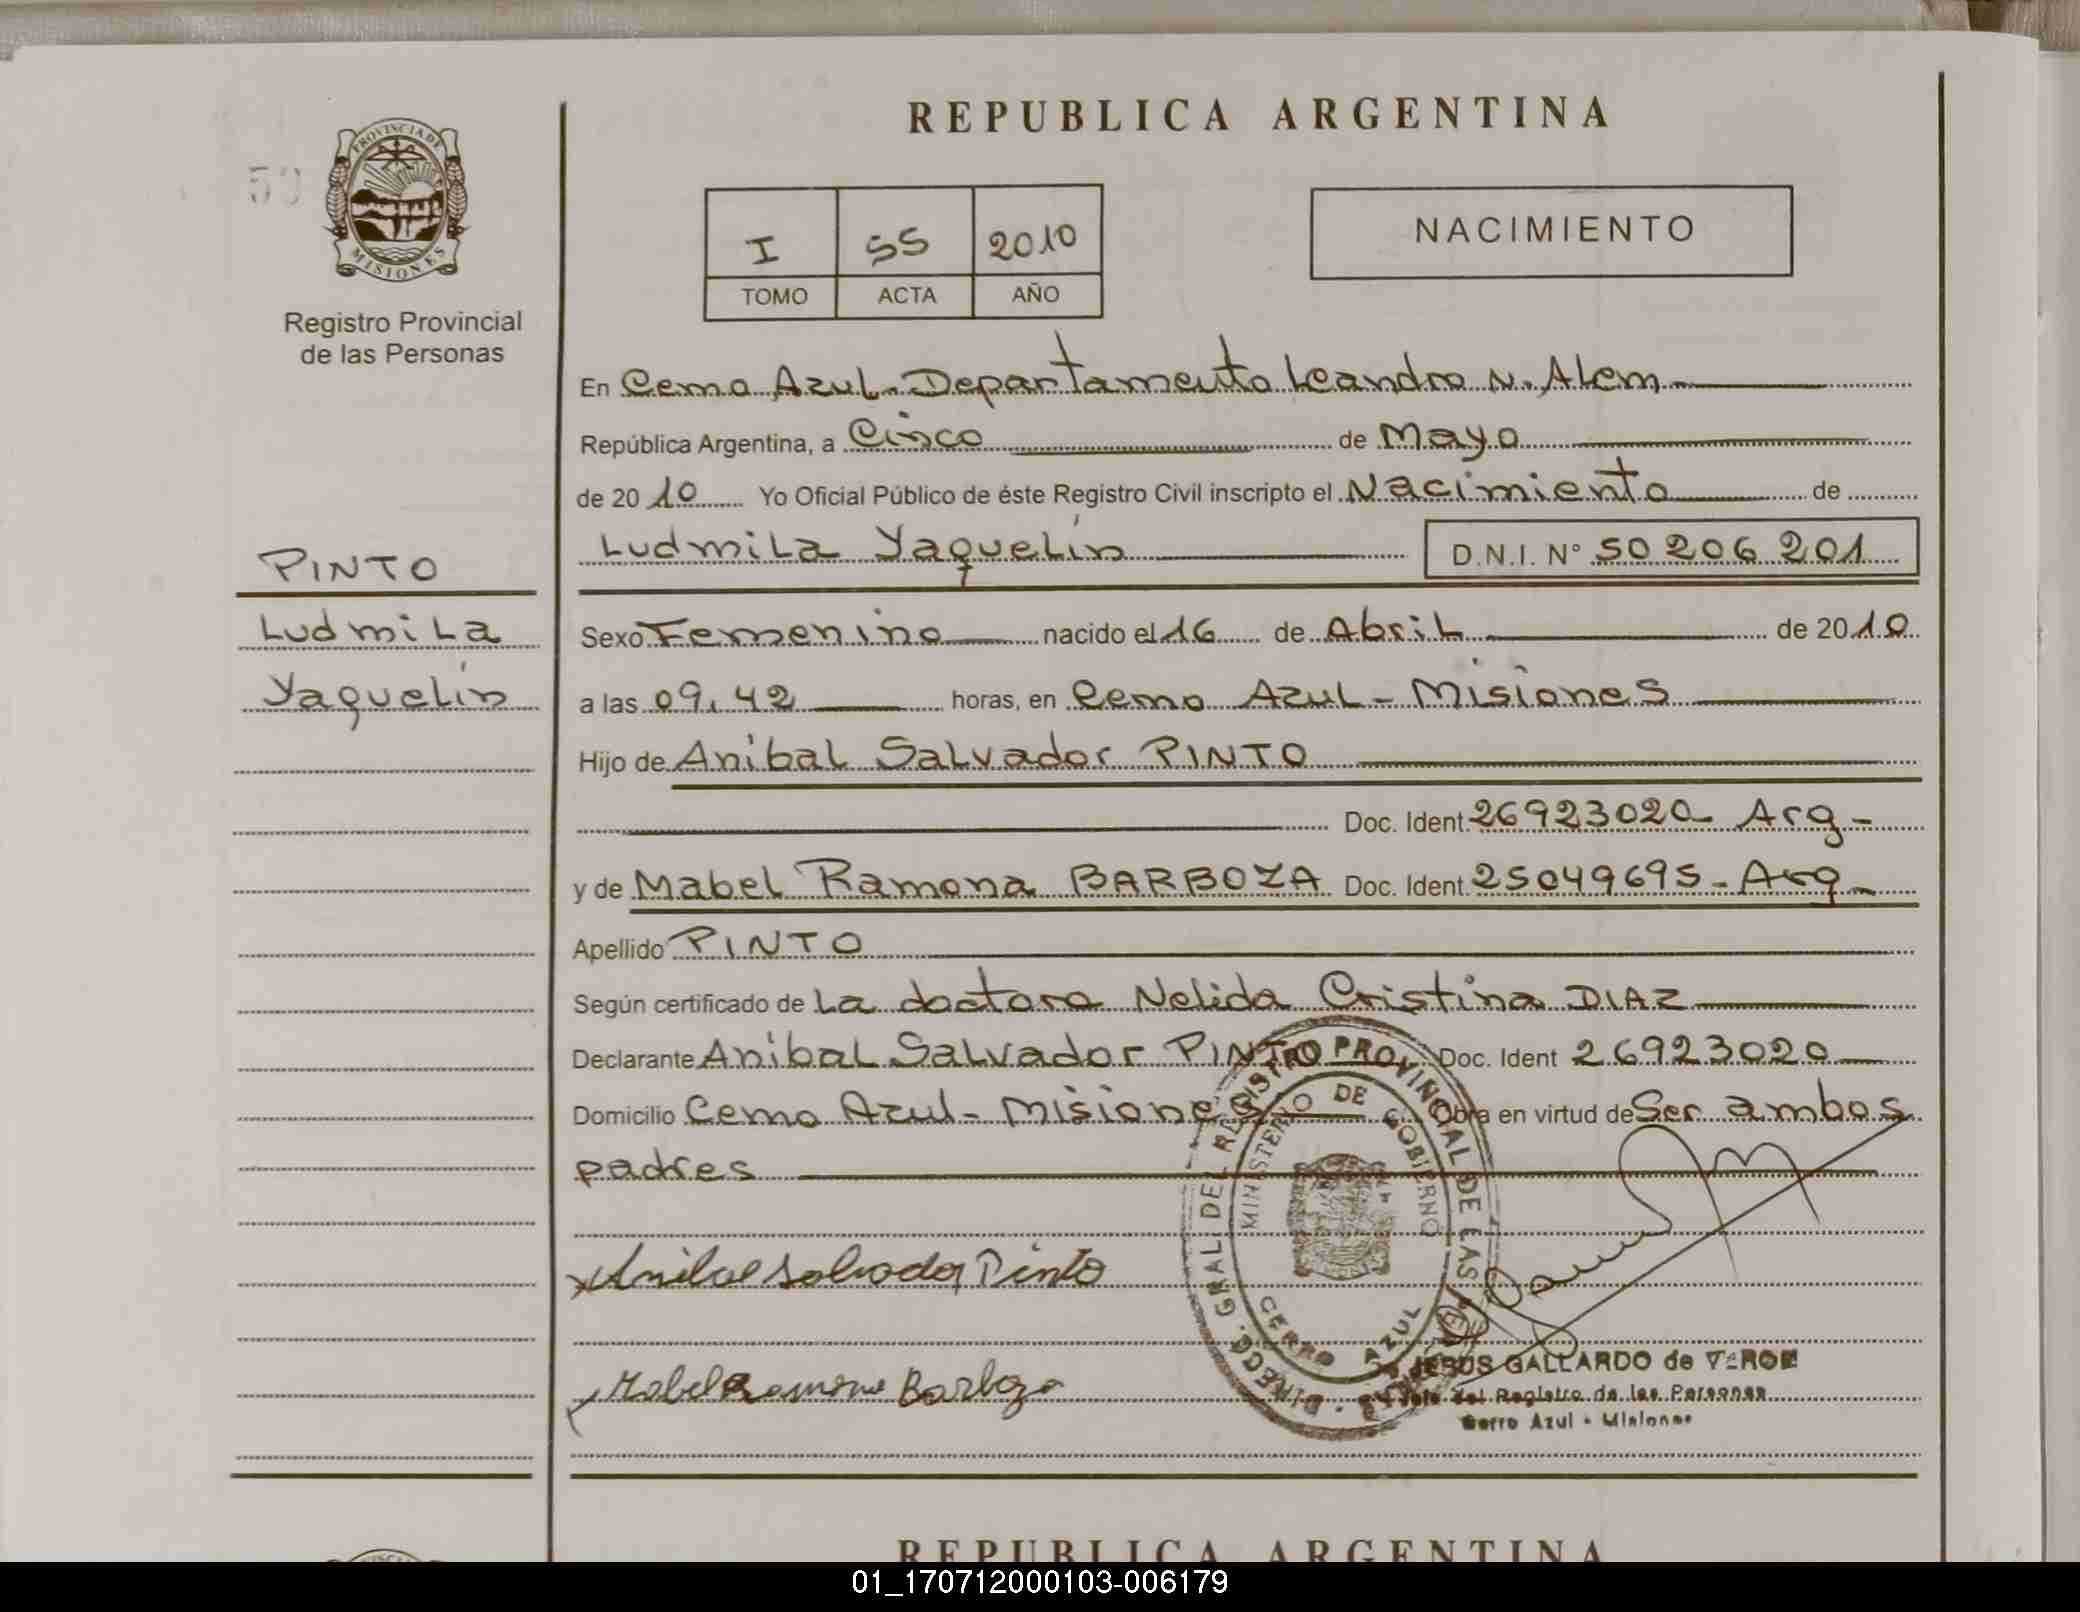 REPUBLICA ARGENTINA
PROVINCIA DE
MISIONES
Registro Provincial
de las Personas
I 55 2010
TOMO ACTA AÑO
NACIMIENTO
En Cerro Azul-Departamento Leandro N. Alem
República Argentina, a Cinco de Mayo
de 2010 Yo Oficial Público de éste Registro Civil inscripto el Nacimiento de
Ludmila Yaquelin D.N.I. N° 50 206 201
PINTO
Ludmila
Yaquelin
Sexo Femenino nacido el 16 de Abril de 2010
a las 09,42 horas, en Cerro Azul - Misiones
Hijo de Anibal Salvador PINTO
Doc. Ident. 26923020- Arg-
y de Mabel Ramona BARBOZA Doc. Ident. 25049695- Arg-
Apellido PINTO
Según certificado de La doctora Nelida Cristina DIAZ
Declarante Anibal Salvador PINTO Doc. Ident 26923020
Domicilio Cerro Azul- Misiones Obra en virtud de Ser ambos
padres
Anibal Salvador Pinto
Mabel Ramona Barboza
DIRECC. GRAL DEL REGISTRO PROVINCIAL DE LAS
MINISTERIO DE GOBIERNO
CERRO AZUL
JESUS GALLARDO de
Jefe del Registro de las Personas
Cerro Azul - Misiones
REPUBLICA ARGENTINA
01_170712000103-006179